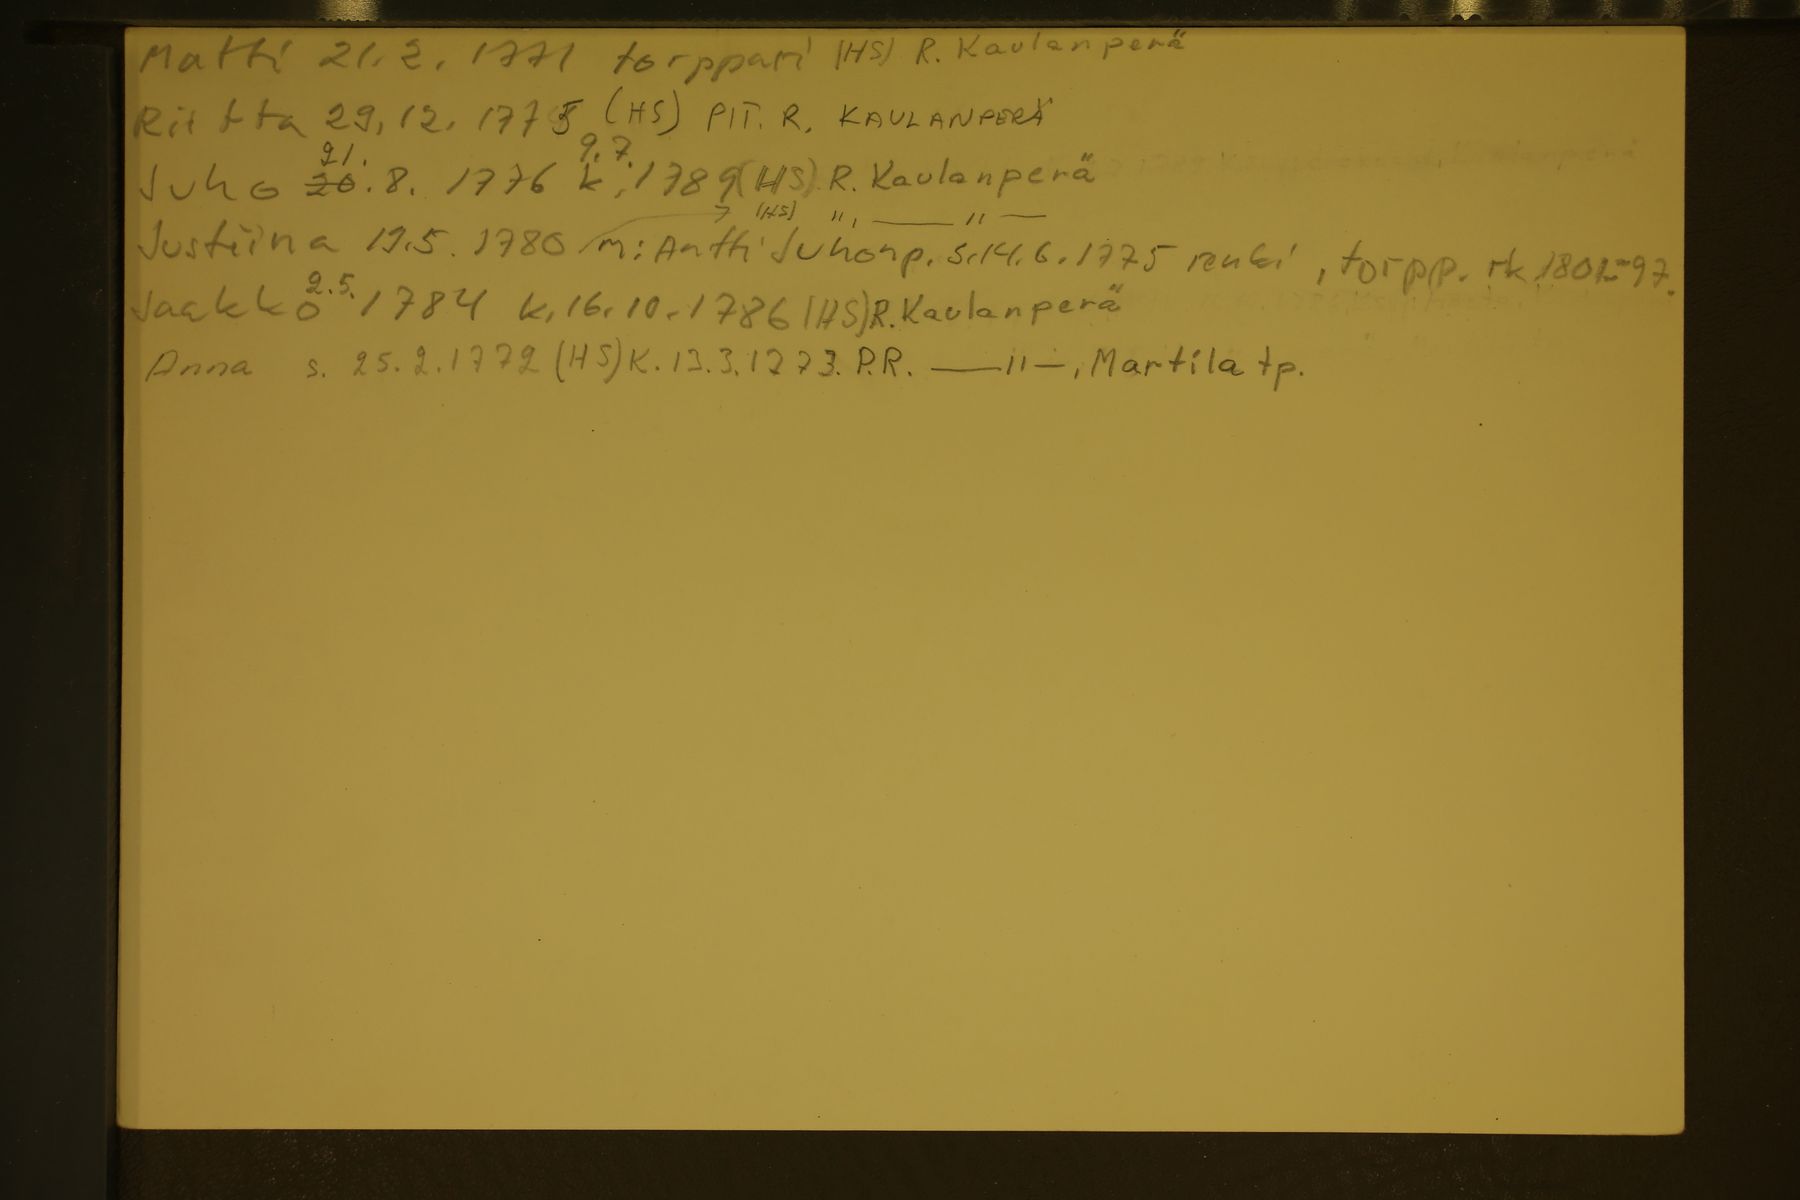 Matti 21.2. 1771 torppari (HS) R. Kaulanperä
Riitta 29.12. 1775 (HS) PIT. R. KAULANPERÄ
21. 9.7.
Juho 20.8. 1776 k. 1789 (HS) R. Kaulanperä
(HS) ", —— " —
Justiina 19.5. 1780 m: Antti Juhonp. s.14.6.1775 renki , torpp. rk 1801-97.
2.5.
Jaakko 1784 k. 16.10.1786 (HS) R. Kaulanperä
Anna s. 25.2.1772 (HS) K. 13.3.1773. P.R. —— " —, Martila tp.